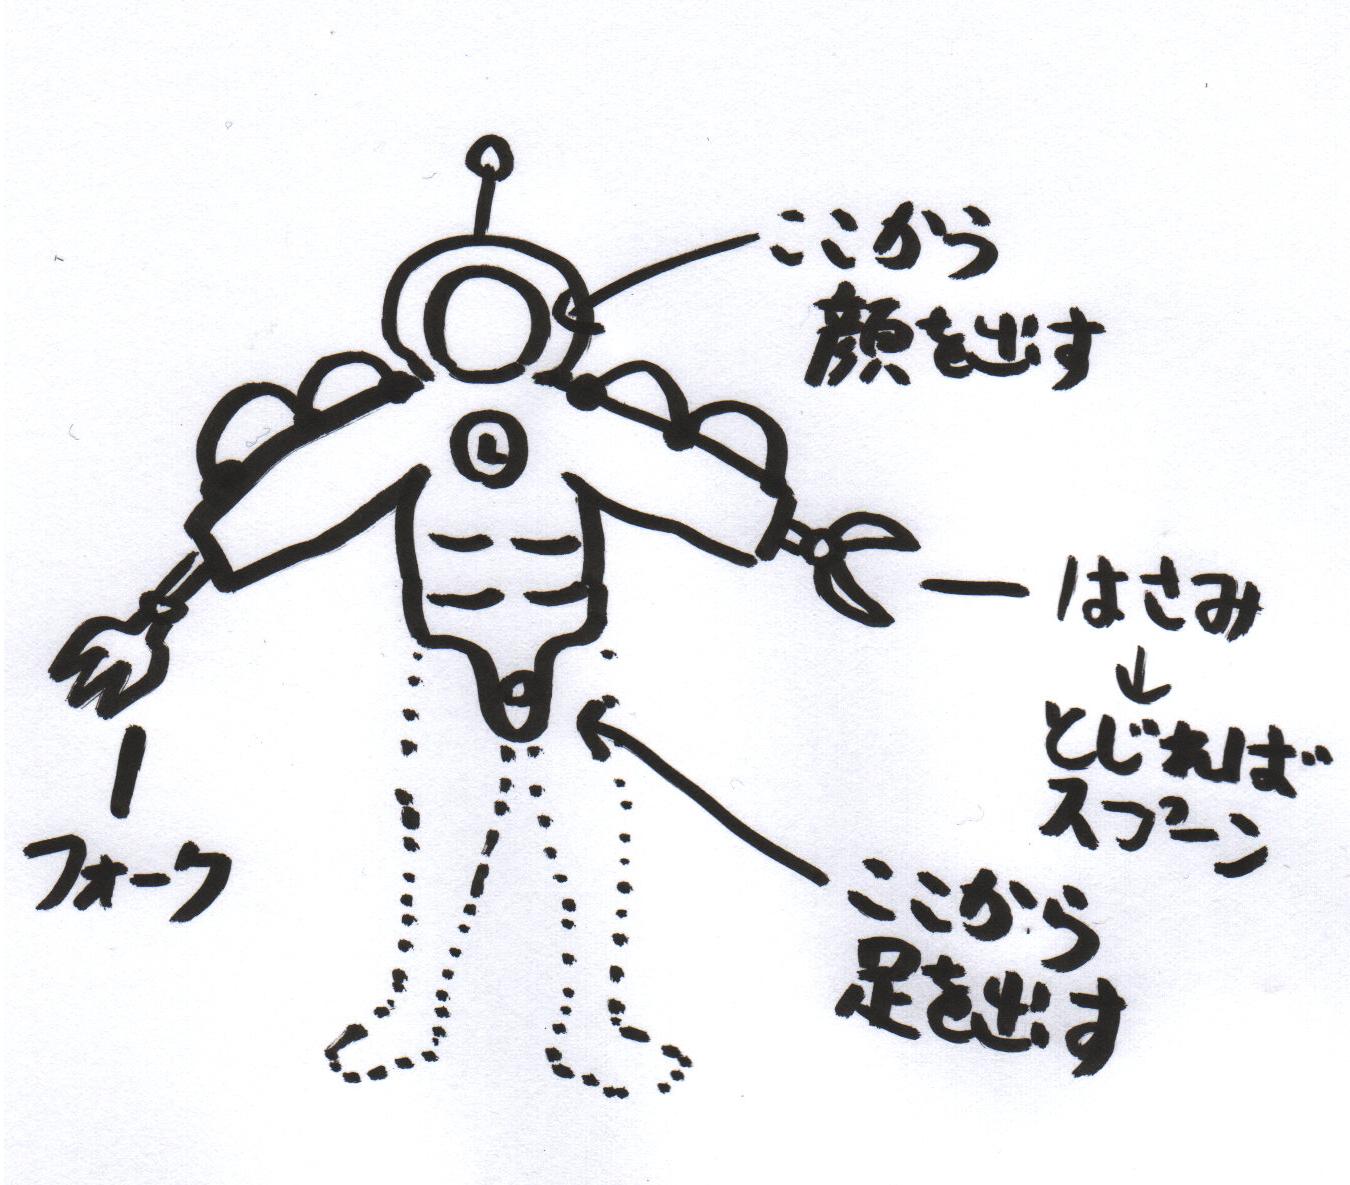 ここから
顔を出す
L
はさみ
↓
とじれば
スプーン
フォーク
ここから
足を出す